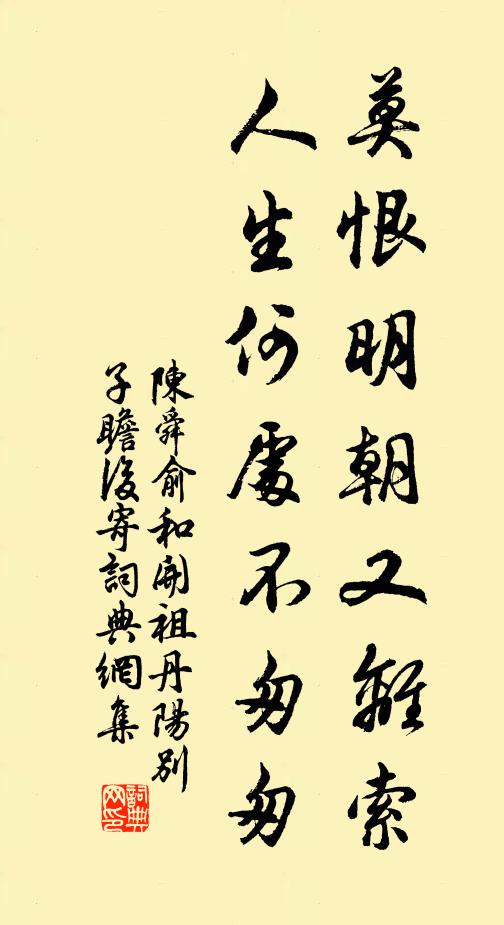 莫恨明朝又離索
人生何處不匆匆
陳舜俞和開祖丹陽別
子瞻後寄詞典網集
詞典網印